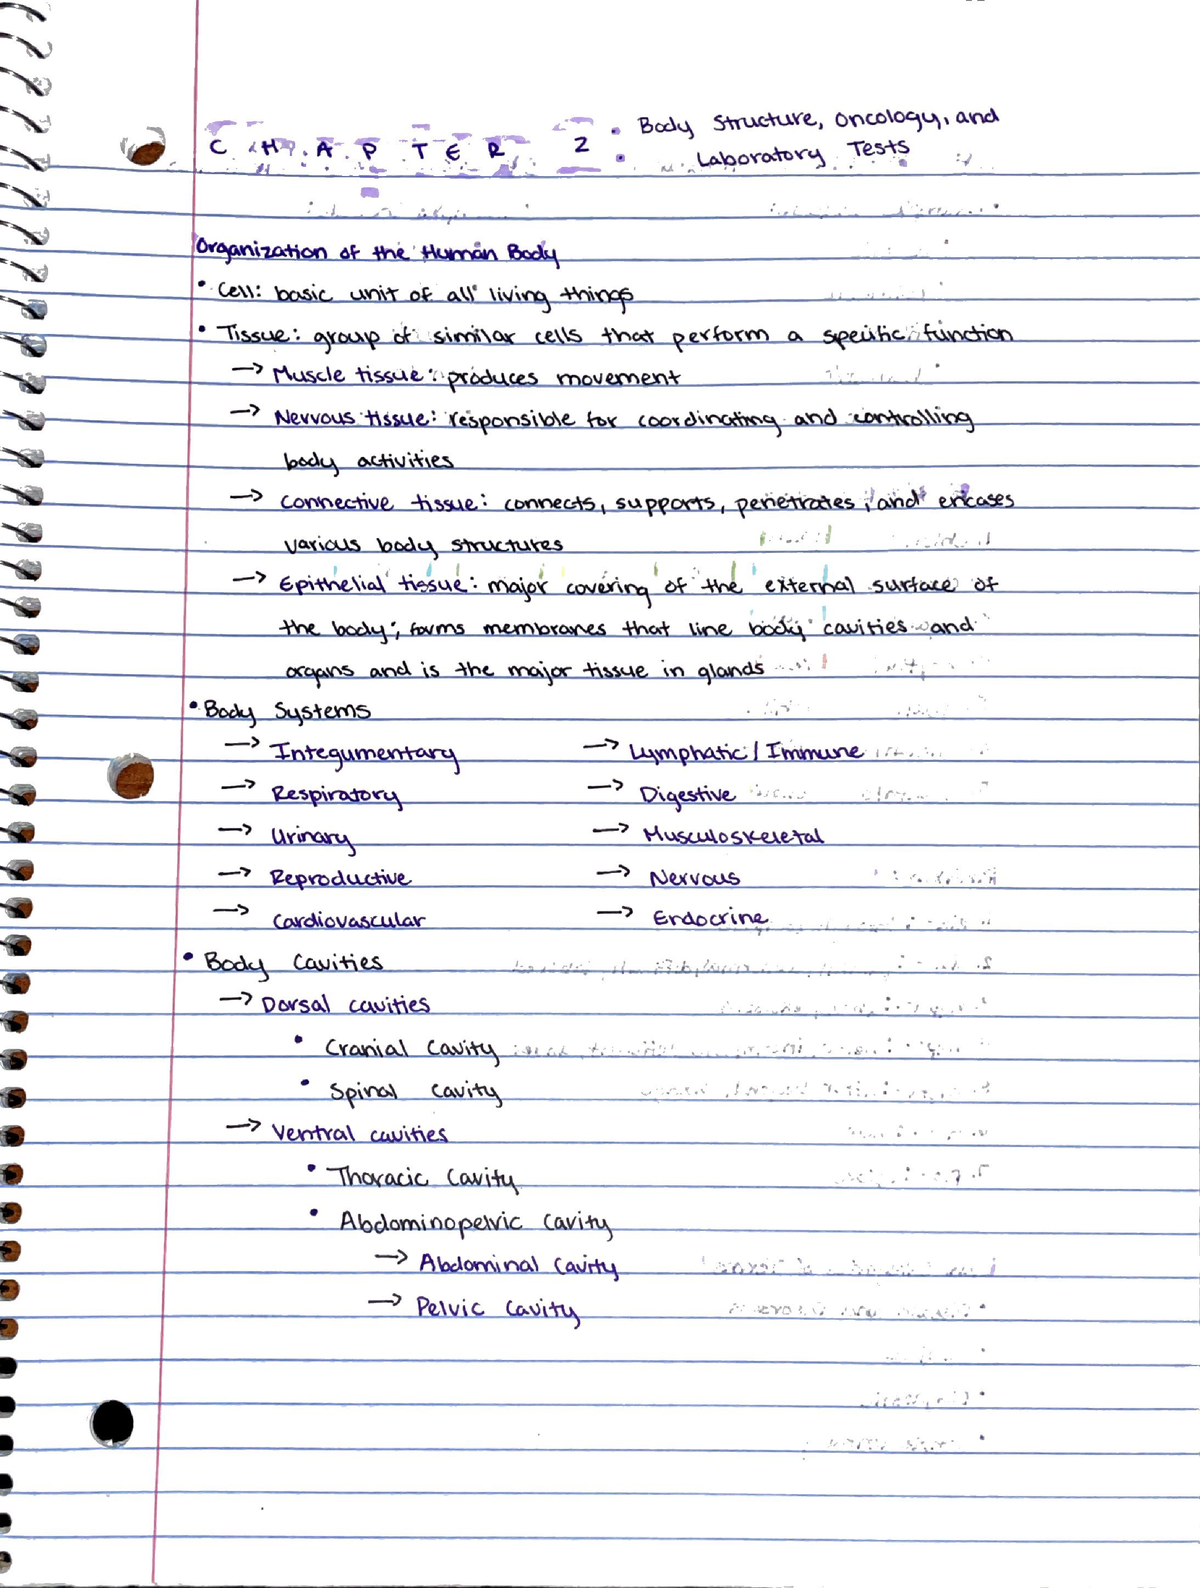 CHAPTER 2: Body Structure, Oncology, and
Laboratory Tests
Organization of the Human Body
• Cell: basic unit of all living things
• Tissue: group of similar cells that perform a specific function
→ Muscle tissue: produces movement
→ Nervous tissue: responsible for coordinating and controlling
body activities
→ Connective tissue: connects, supports, penetrates, and encases
various body structures
→ Epithelial tissue: major covering of the external surface of
the body; forms membranes that line body cavities and
organs and is the major tissue in glands
• Body Systems
→ Integumentary → Lymphatic/Immune
→ Respiratory → Digestive
→ Urinary → Musculoskeletal
→ Reproductive → Nervous
→ Cardiovascular → Endocrine
• Body Cavities
→ Dorsal cavities
• Cranial Cavity
• Spinal Cavity
→ Ventral cavities
• Thoracic Cavity
• Abdominopelvic Cavity
→ Abdominal Cavity
→ Pelvic Cavity